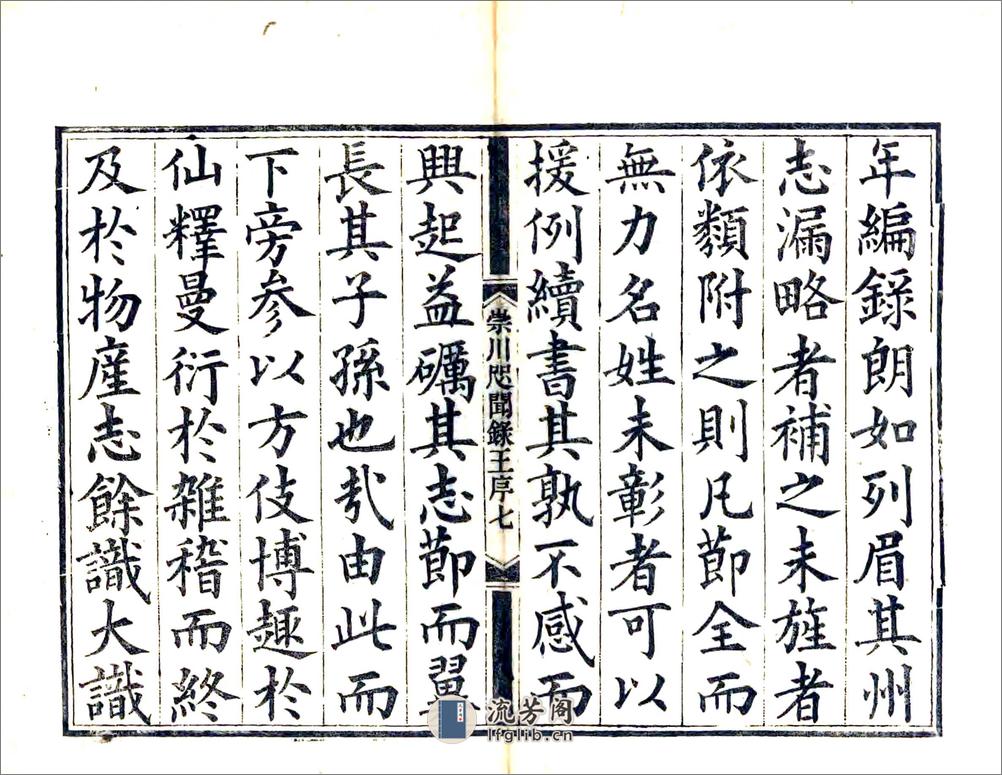 年編錄朗如列眉其州
志漏略者補之未旌者
依類附之則凡節全而
無力名姓未彰者可以
援例續書其孰不感而
崇川咫聞錄王序七
興起益礪其志節而翼
長其子孫也㢤由此而
下旁參以方伎博趣於
仙釋曼衍於雜稽而終
及於物産志餘識大識
流芳阁
lfglib.cn